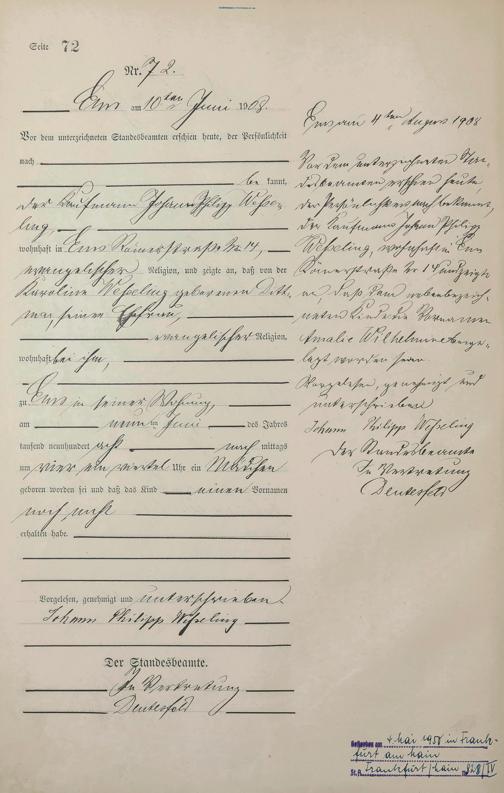 Seite 72
Nr. 72.
Ems am 10ten Juni 1908.
Vor dem unterzeichneten Standesbeamten erschien heute, der Persönlichkeit
nach
be kannt,
der Kaufmann Johann Philipp Weße-
ling,
wohnhaft in Ems Römerstraße Nr 14,
evangelischer Religion, und zeigte an, daß von der
Karoline Weßeling geborenen Ditt-
mar, seiner Ehefrau,
evangelischer Religion,
wohnhaft bei ihm,
zu Ems in seiner Wohnung,
am neunten Juni des Jahres
tausend neunhundert acht nach mittags
um vier ein viertel Uhr ein Mädchen
geboren worden sei und daß das Kind einen Vornamen
noch nicht
erhalten habe.
Vorgelesen, genehmigt und unterschrieben.
Johann Philipp Weßeling
Der Standesbeamte.
In Vertretung
Deutesfeld
Ems am 4ten August 1908
Vor dem unterzeichneten Stan-
desbeamten erschien heute,
der Persönlichkeit nach bekannt,
der Kaufmann Johann Philipp
Weßeling, wohnhaft in Ems
Römerstraße Nr 14 und zeigte
an, daß dem nebenbezeich-
neten Kinde die Vornamen
Amalie Wilhelmine beige-
legt worden seien.
Vorgelesen, genehmigt und
unterschrieben
Johann Philipp Weßeling
Der Standesbeamte
In Vertretung
Deutesfeld
Gestorben am 4 Mai 1958 in Frank-
furt am Main
St.A. Frankfurt/Main Nr 828/IV